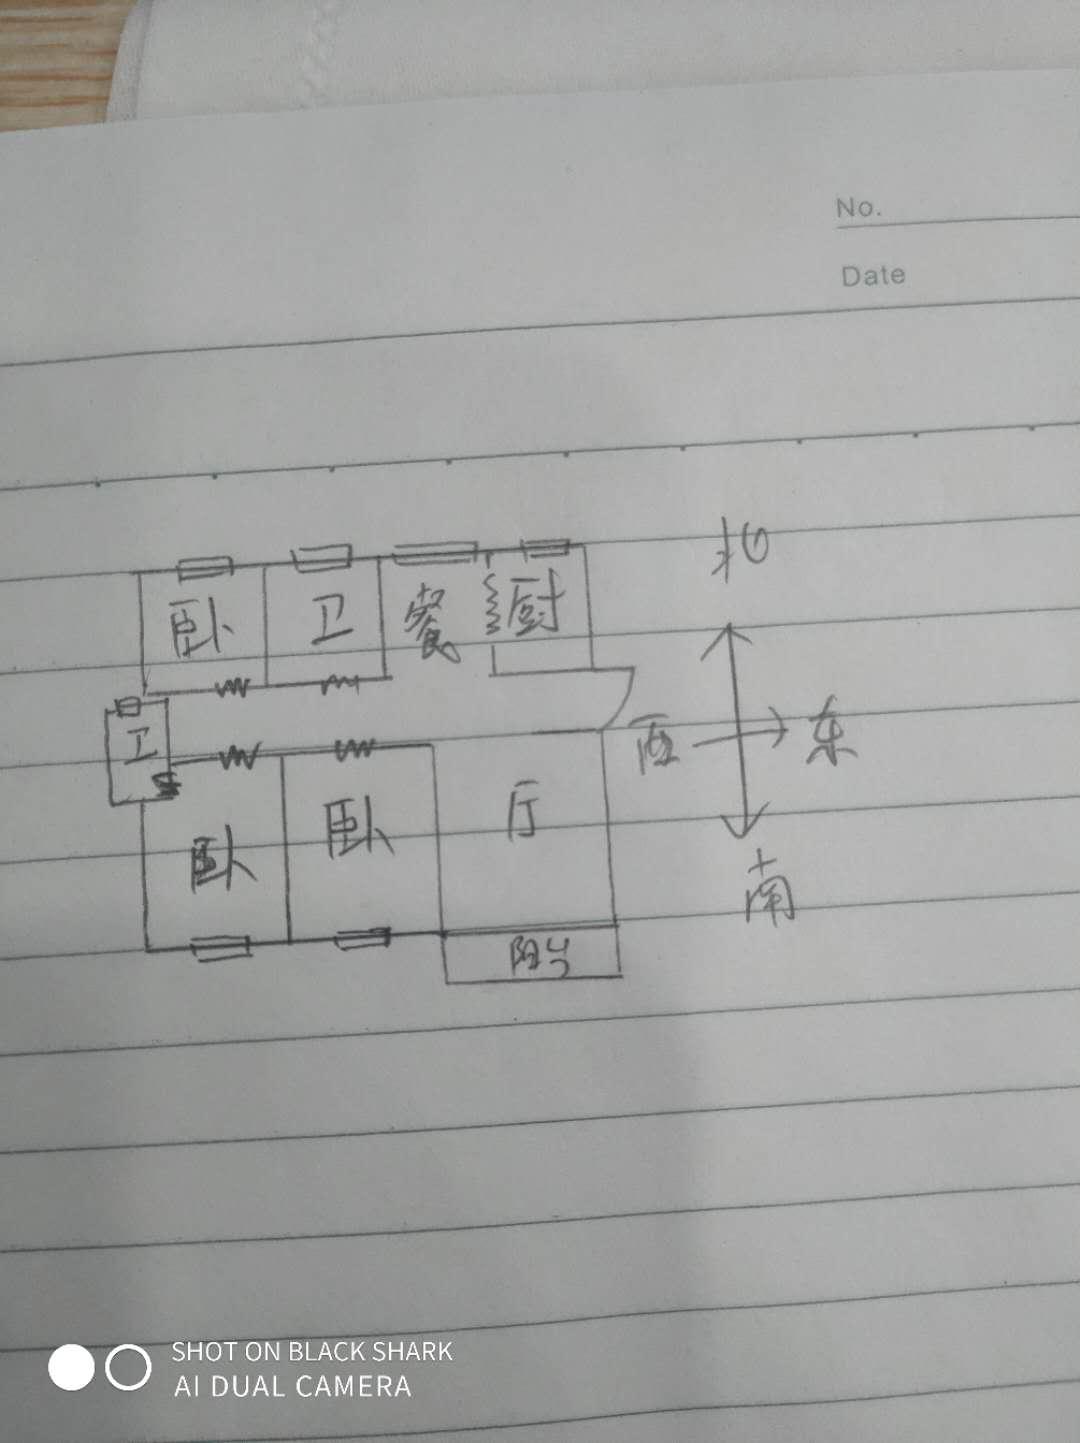 No.
Date
北
卧 卫 餐 厨
西 东
卫
卧 卧 厅
南
阳台
SHOT ON BLACK SHARK
AI DUAL CAMERA